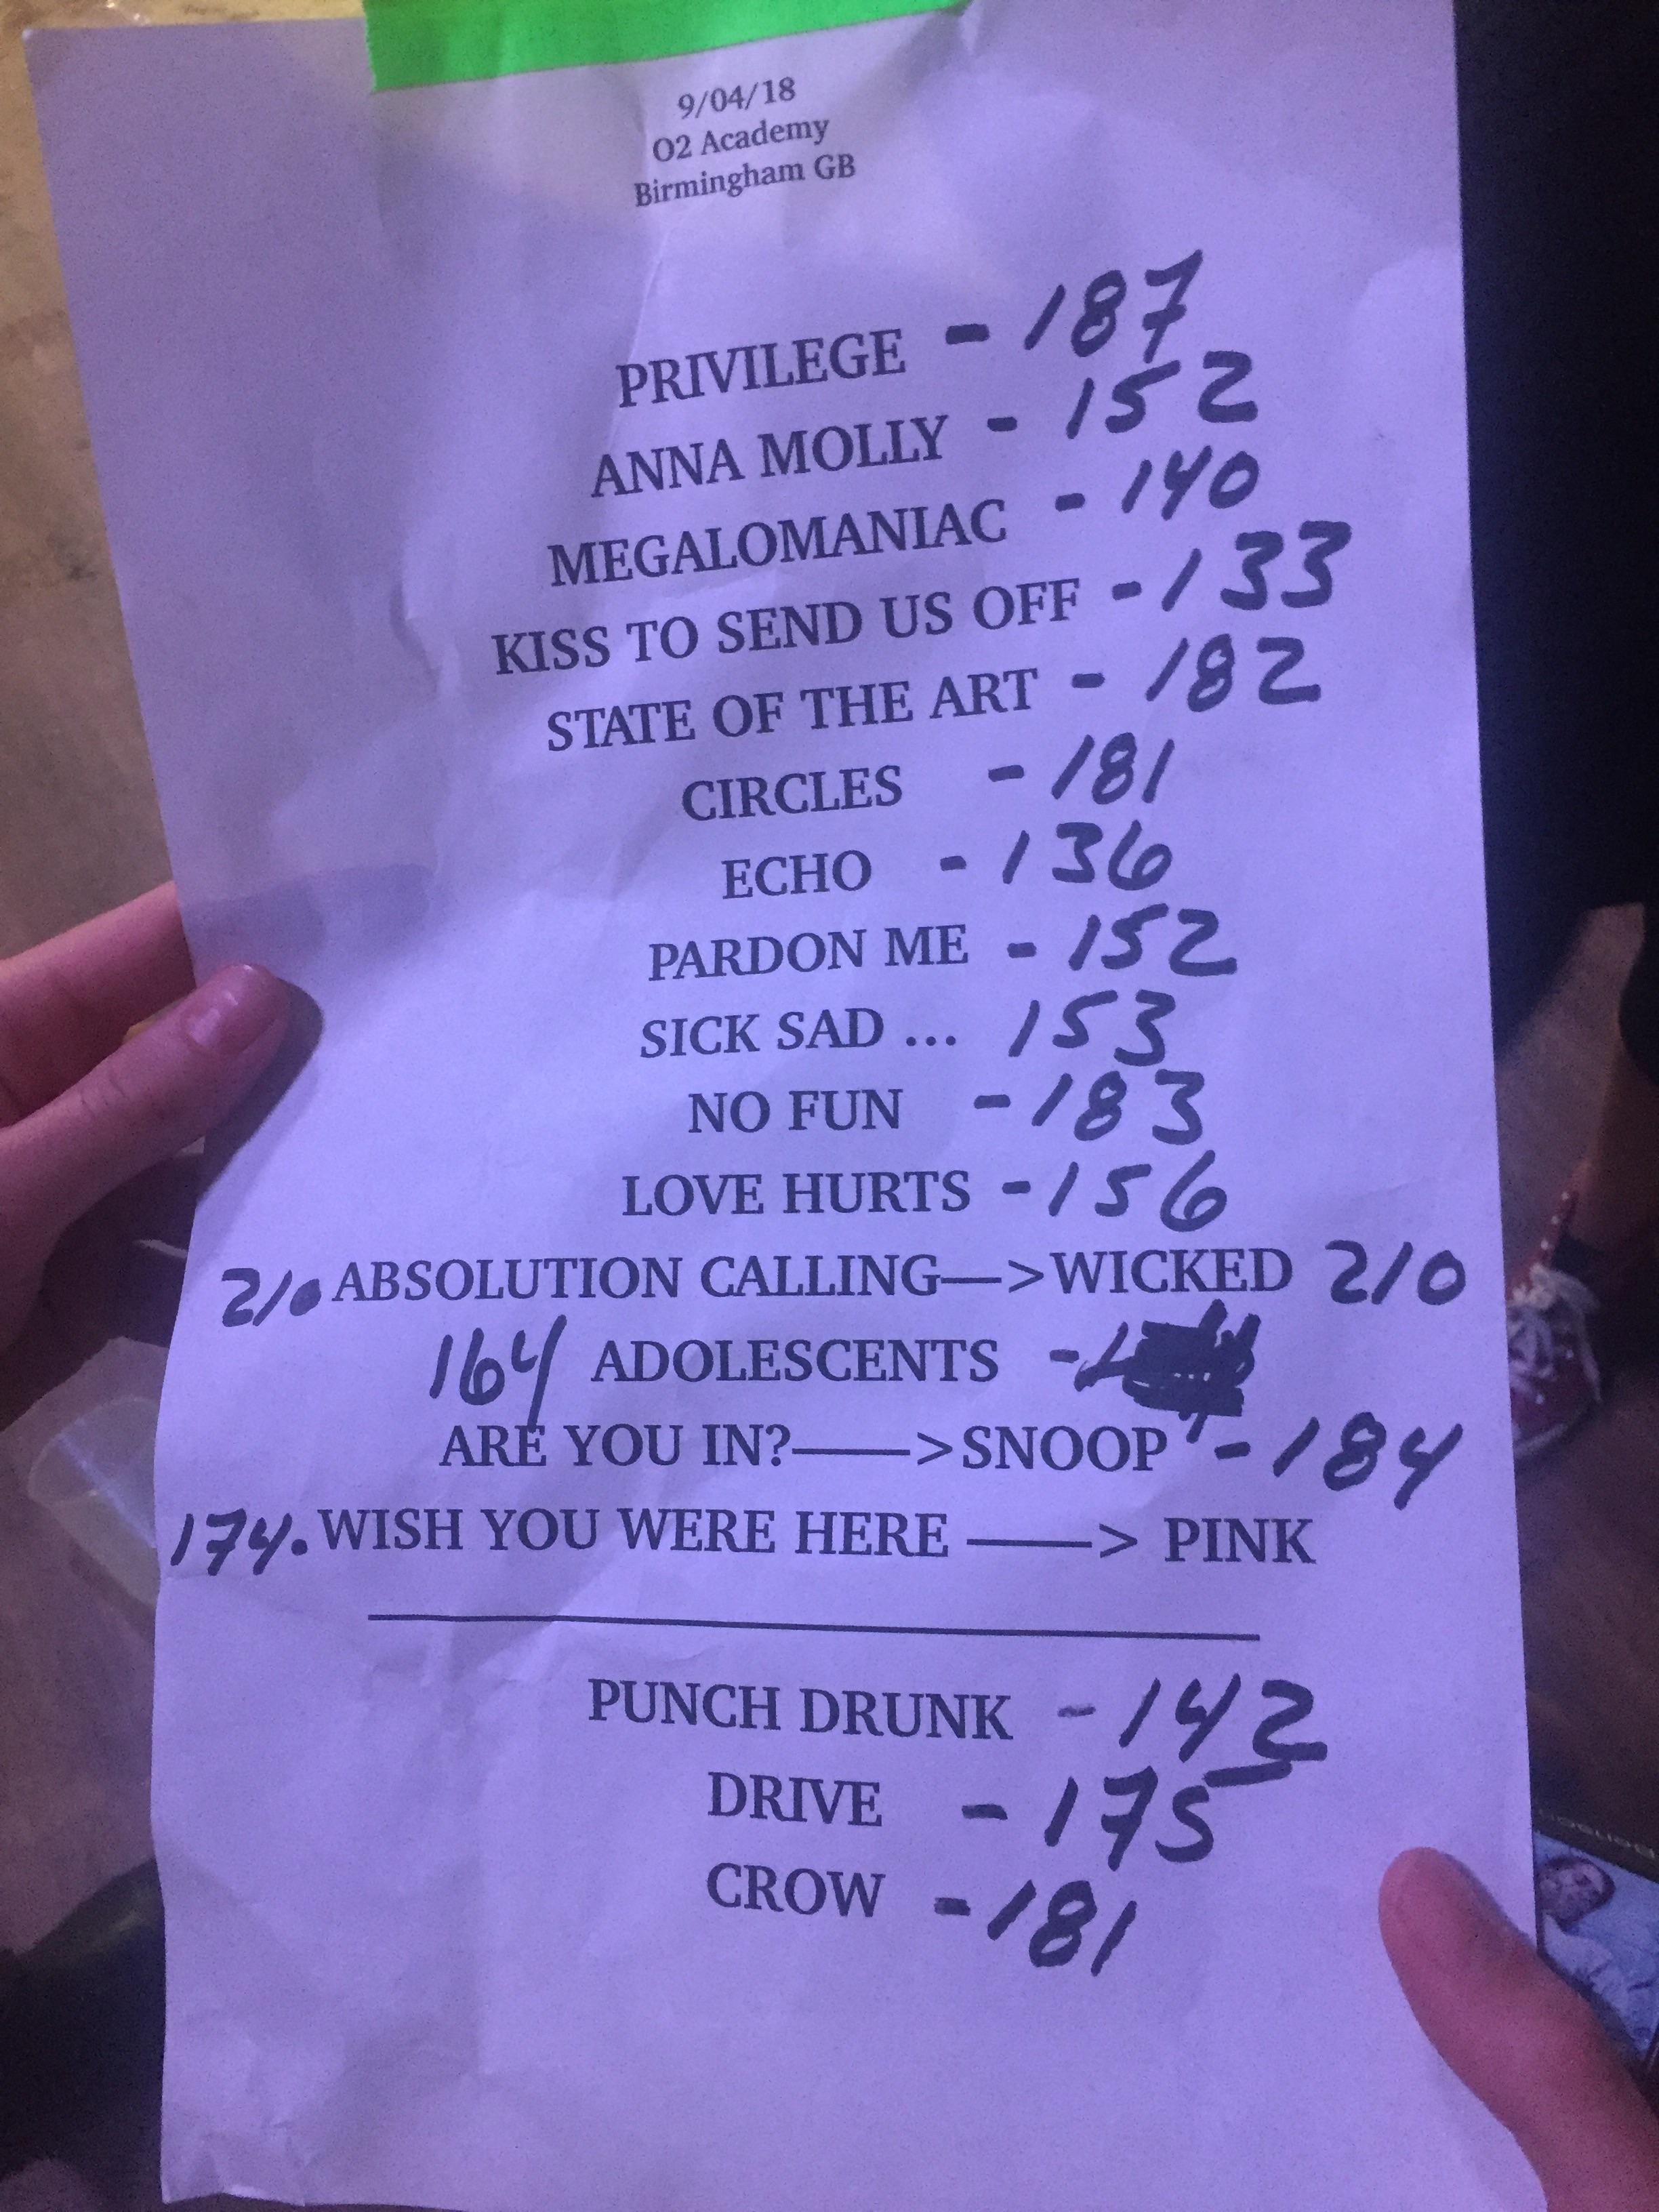 9/04/18
O2 Academy
Birmingham GB
PRIVILEGE - 187
ANNA MOLLY - 152
MEGALOMANIAC - 140
KISS TO SEND US OFF - 133
STATE OF THE ART - 182
CIRCLES - 181
ECHO - 136
PARDON ME - 152
SICK SAD ... 153
NO FUN - 183
LOVE HURTS - 156
210 ABSOLUTION CALLING—>WICKED 210
164 ADOLESCENTS -
ARE YOU IN?——>SNOOP - 184
174. WISH YOU WERE HERE ——> PINK
PUNCH DRUNK - 142
DRIVE - 175
CROW - 181